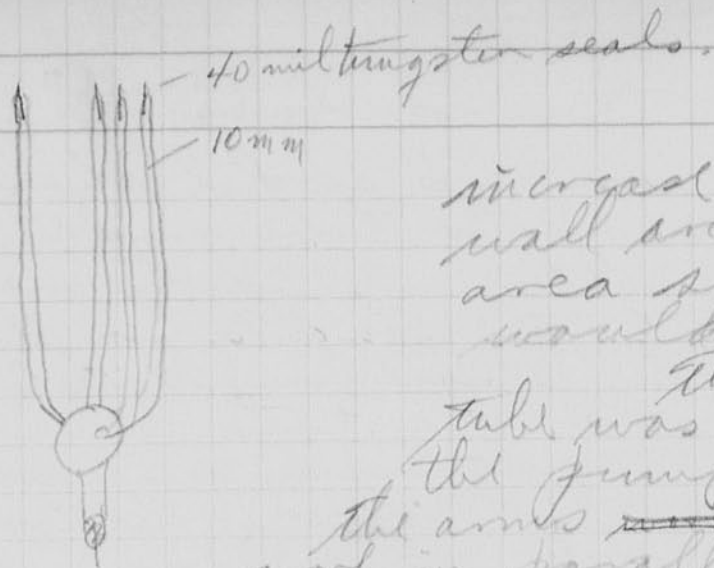 40 mil tungsten seals.
10 mm
increase
wall
area
would
tube was
the
the arms